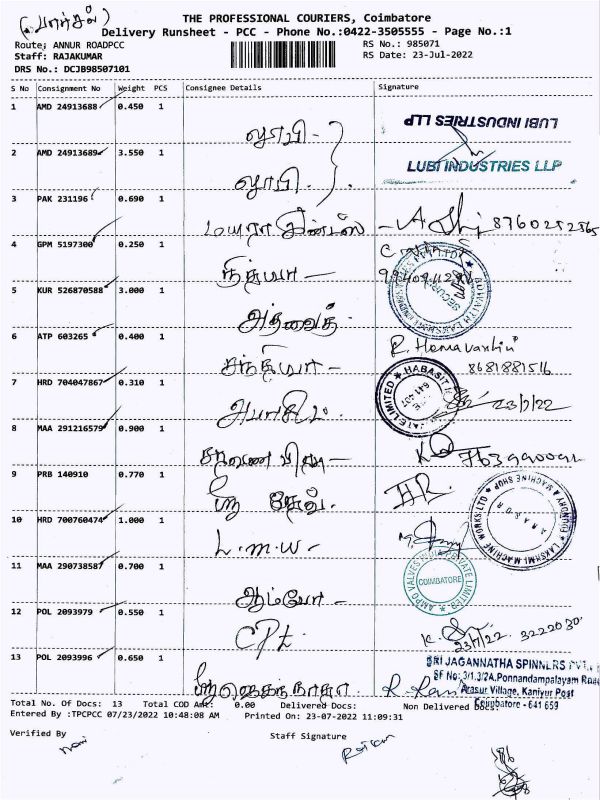 (பார்சல்)
THE PROFESSIONAL COURIERS, Coimbatore
Delivery Runsheet - PCC - Phone No.:0422-3505555 - Page No.:1
Route: ANNUR ROADPCC
RS No.: 985071
Staff: RAJAKUMAR
RS Date: 23-Jul-2022
DRS No.: DCJB98507101
S No Consignment No Weight PCS Consignee Details Signature
1 AMD 24913688 0.450 1
LUBI INDUSTRIES LLP
லூபி -
2 AMD 24913689 3.550 1
LUBI INDUSTRIES LLP
லூபி .
3 PAK 231196 0.690 1
8760252565
4 GPM 5197300 0.250 1
நித்யா —
5 KUR 526870588 3.000 1
SECURITY
அத்வைத்
6 ATP 603265 0.400 1
R. Hemavarthini
8681881516
7 HRD 704047867 0.310 1
HABASIT
641 407
23/7/22
8 MAA 291216579 0.900 1
9 PRB 140910 0.770 1
ஸ்ரீ தேவ்.
LAKSHMI MACHINE WORKS LTD
FOUNDRY & MACHINE SHOP
ARASUR
10 HRD 700760474 1.000 1
L.M.W -
11 MAA 29073858 0.700 1
AMPO VALVES INDIA PRIVATE LIMITED
COIMBATORE
ஆம்போ —
12 POL 2093979 0.550 1
CPE
23/7/22. 3222030
13 POL 2093996 0.650 1
SRI JAGANNATHA SPINNERS PVT.
SF No: 3/1.3/2A, Ponnandampalayam Road
Arasur Village, Kaniyur Post
Coimbatore - 641 659
ஸ்ரீ ஜெகந்நாதா
R. Ravi
Total No. Of Docs: 13 Total COD Amt: 0.00 Delivered Docs: Non Delivered Docs:
Entered By :TPCPCC 07/23/2022 10:48:08 AM Printed On: 23-07-2022 11:09:31
Verified By
Staff Signature